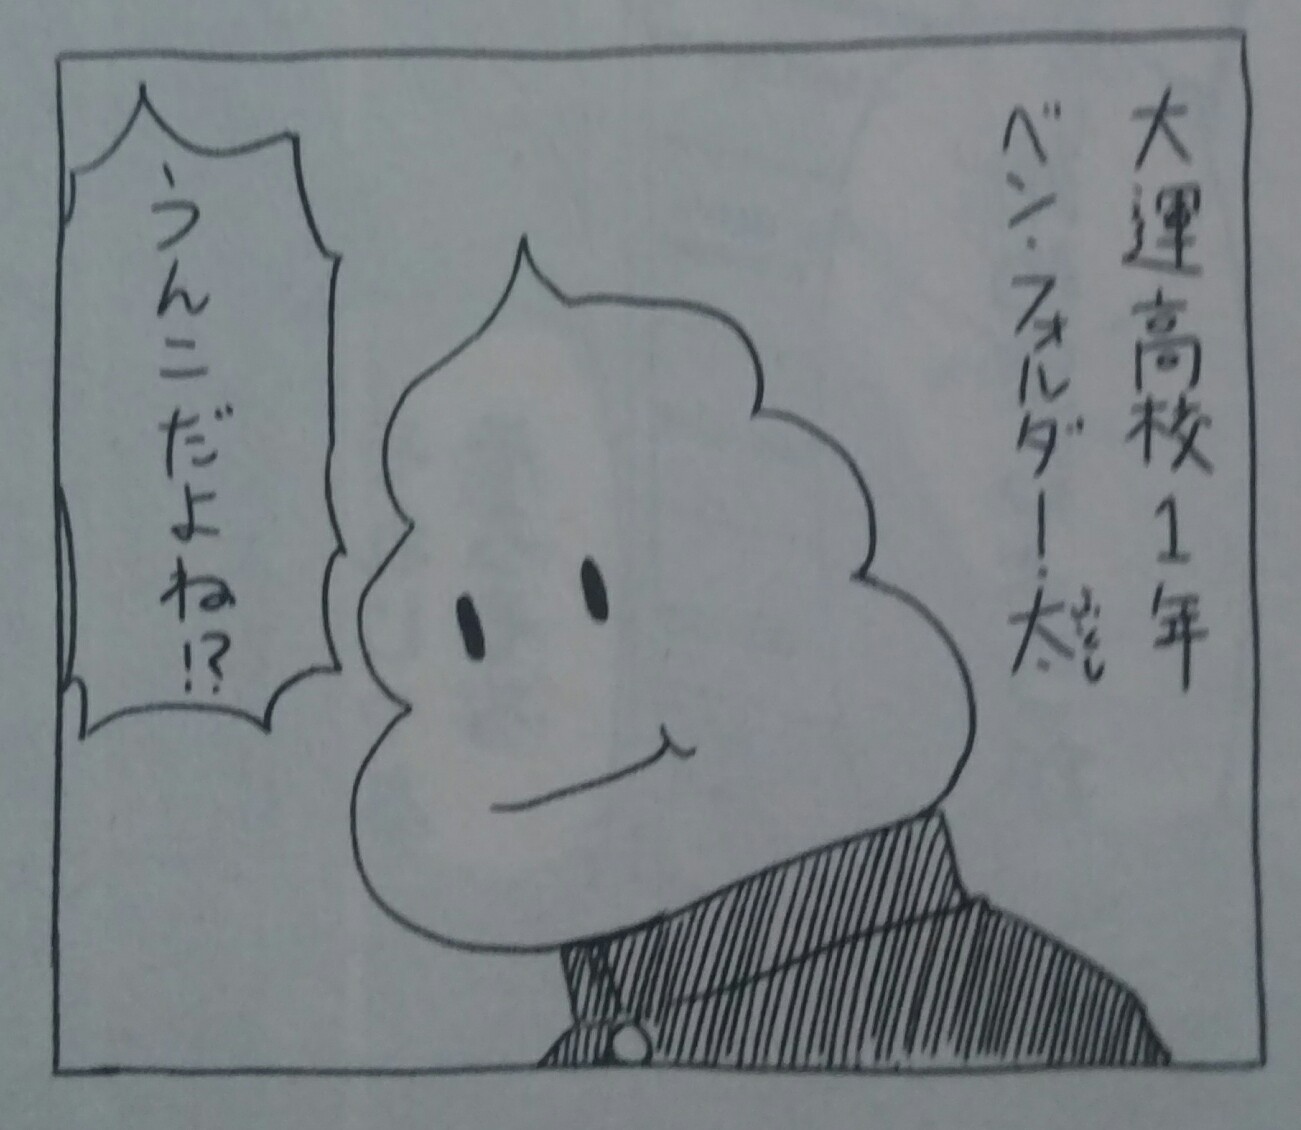 大運高校1年
ベン・フォルダー・太
ふとし
うんこだよね!?